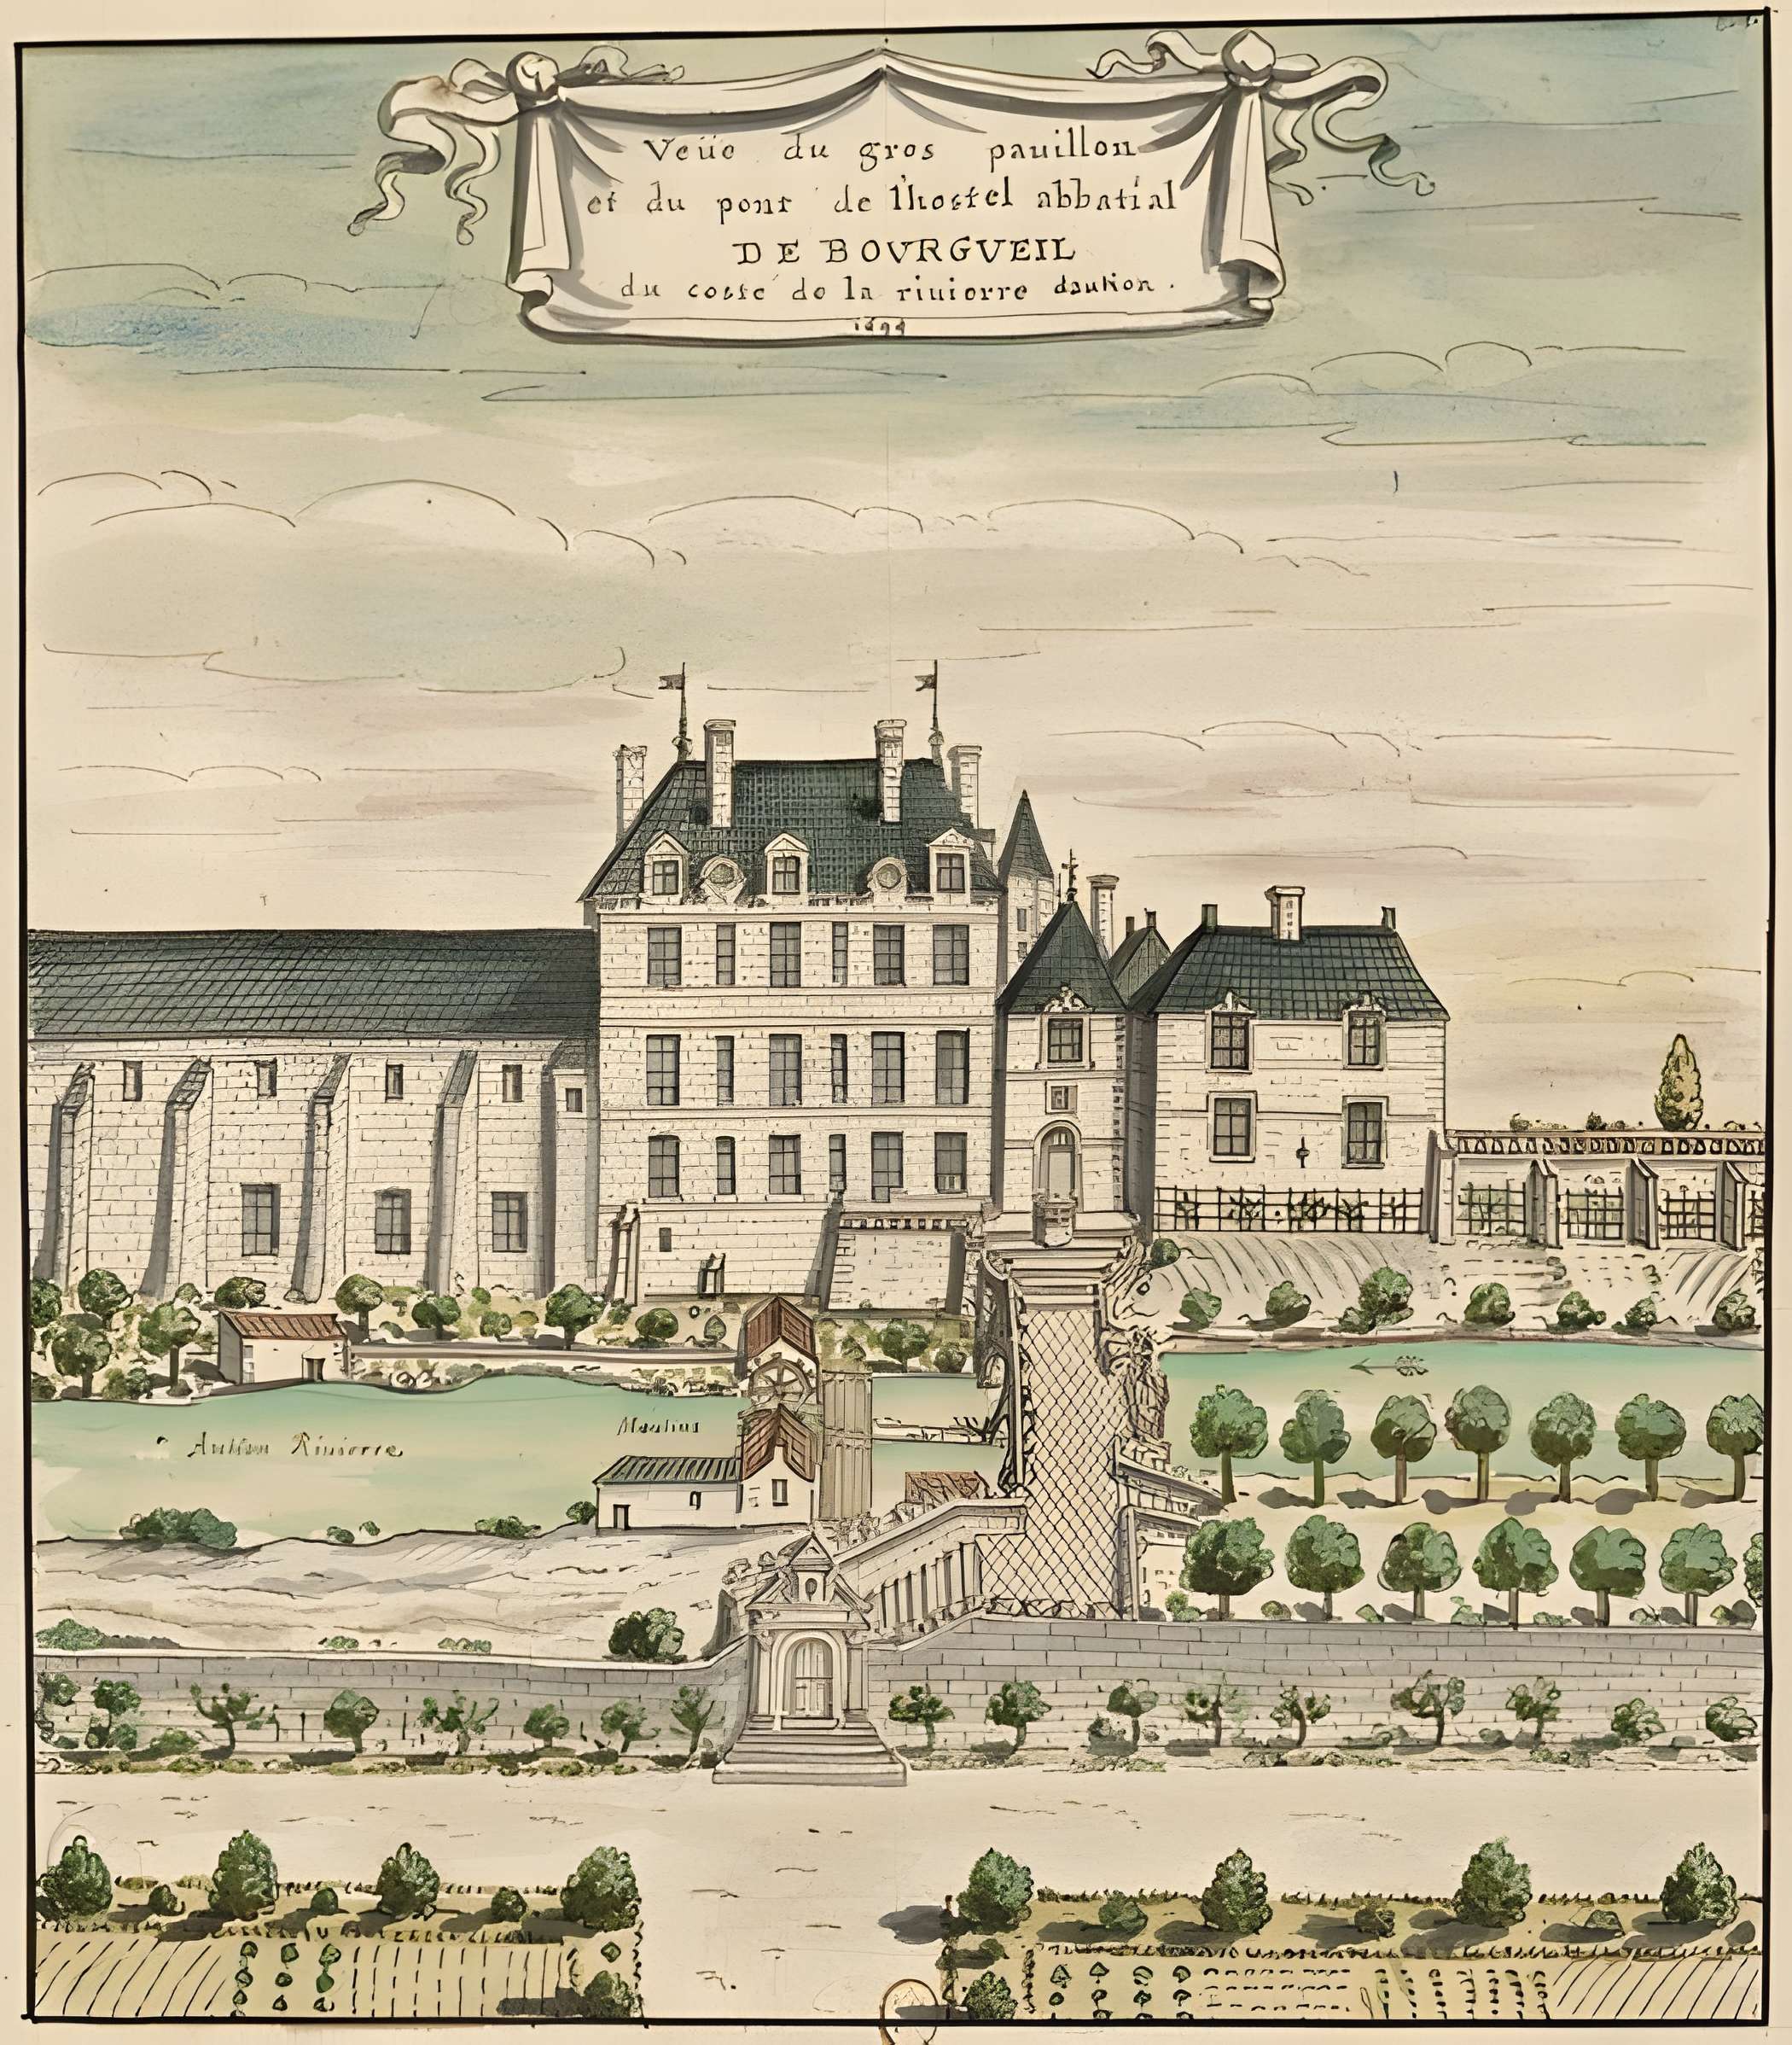 Veüe du gros pauillon
et du pont de l'hostel abbatial
DE BOVRGVEIL
du costé de la riuierre daution .
1699
Aution Riuierre
Moulins